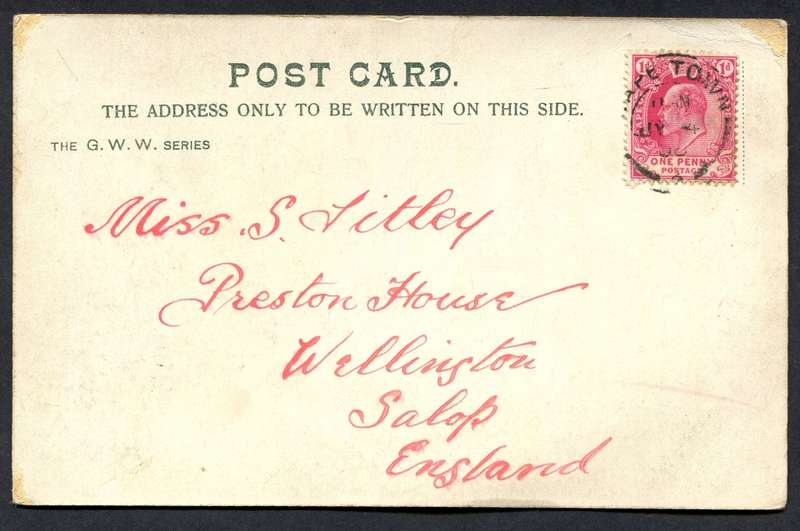 POST CARD.
THE ADDRESS ONLY TO BE WRITTEN ON THIS SIDE.
THE G. W. W. SERIES
1d 1d
ONE PENNY
POSTAGE
APE TOWN
JY 4
Miss. S. Titley
Preston House
Wellington
Salop
England